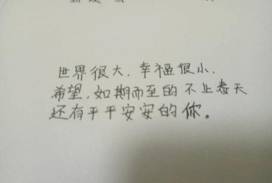 世界很大，幸福很小。
希望，如期而至的不止春天
还有平平安安的你。